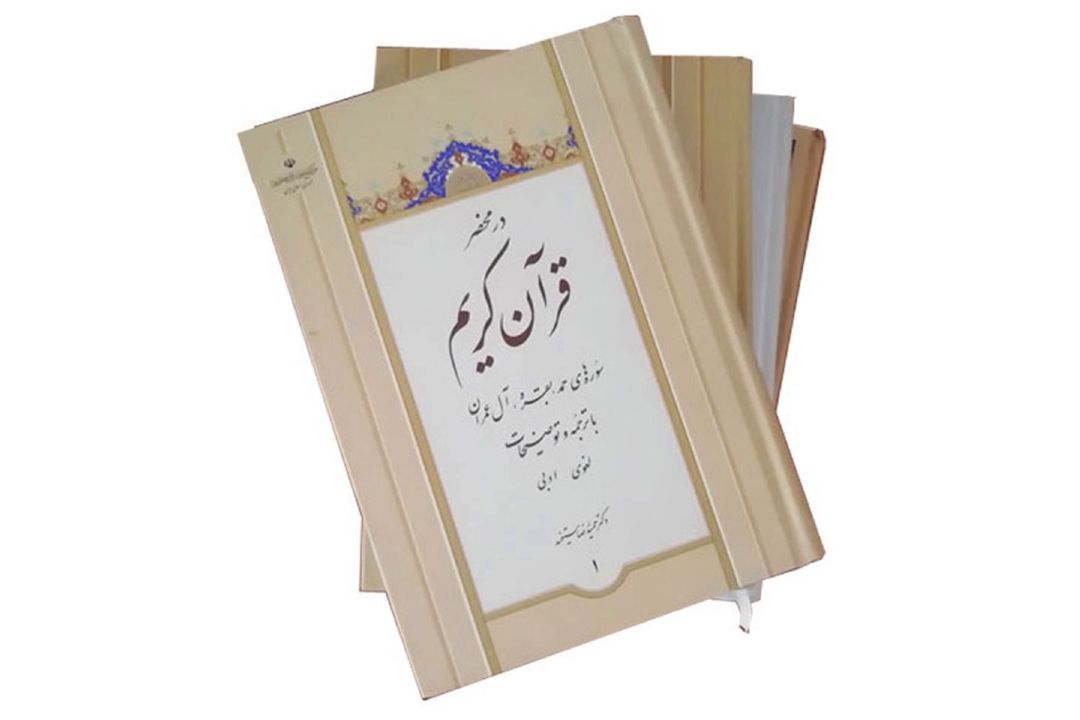 در محضر
قرآن کریم
سوره‌های حمد، بقره، آل عمران
با ترجمه و توضیحات
لغوی ادبی
دکتر
۱